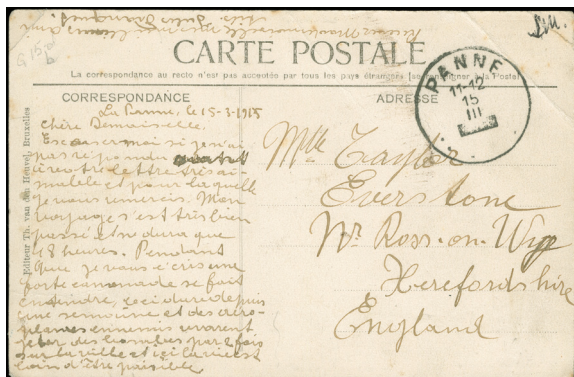 CARTE POSTALE
La correspondance au recto n'est pas acceptée par tous les pays étrangers (se renseigner à la Poste)
CORRESPONDANCE
ADRESSE
PANNE
11-12
15
III
Editeur Th. van den Heuvel, Bruxelles
La Panne, le 15-3-1915
Chère Demoiselle.
Escusez moi si je n'ai
pas répondu
à votre lettre très ai-
mable et pour laquelle
je vous remercis. Mon
voyage s'est très bien
passé et ne dura que
48 heures. Pendant
que je vous écris une
forte canonade se fait
entendre, ceci dure depuis
une semaine et des aéro-
planes ennemis
jeter des bombes par 2 fois
sur la ville et ici la vie est
loin d'être paisible
Mlle Taylor
Everstone
Nr Ross-on-Wye
Herefordshire
England